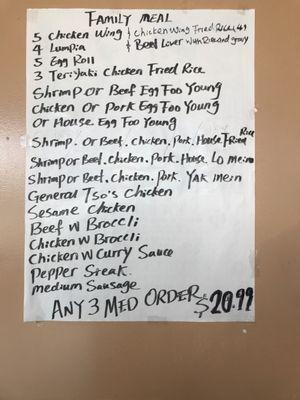 FAMILY MEAL
5 Chicken Wing & Chicken Wing Fried Rice
4 Lumpia & Beef Lover with Rice and gravy
5 Egg Roll
3 Teriyaki Chicken Fried Rice
Shrimp or Beef Egg Foo Young
Chicken or Pork Egg Foo Young
Or House Egg Foo Young
Shrimp. or Beef. Chicken. Pork. House Fried Rice
Shrimp or Beef. Chicken. Pork. House. Lo mein
Shrimp or Beef. Chicken. Pork. Yak mein
General Tso's Chicken
Sesame Chicken
Beef W Broccli
Chicken W Broccli
Chicken W Curry Sauce
Pepper Steak.
medium Sausage
ANY 3 MED ORDER $20.99